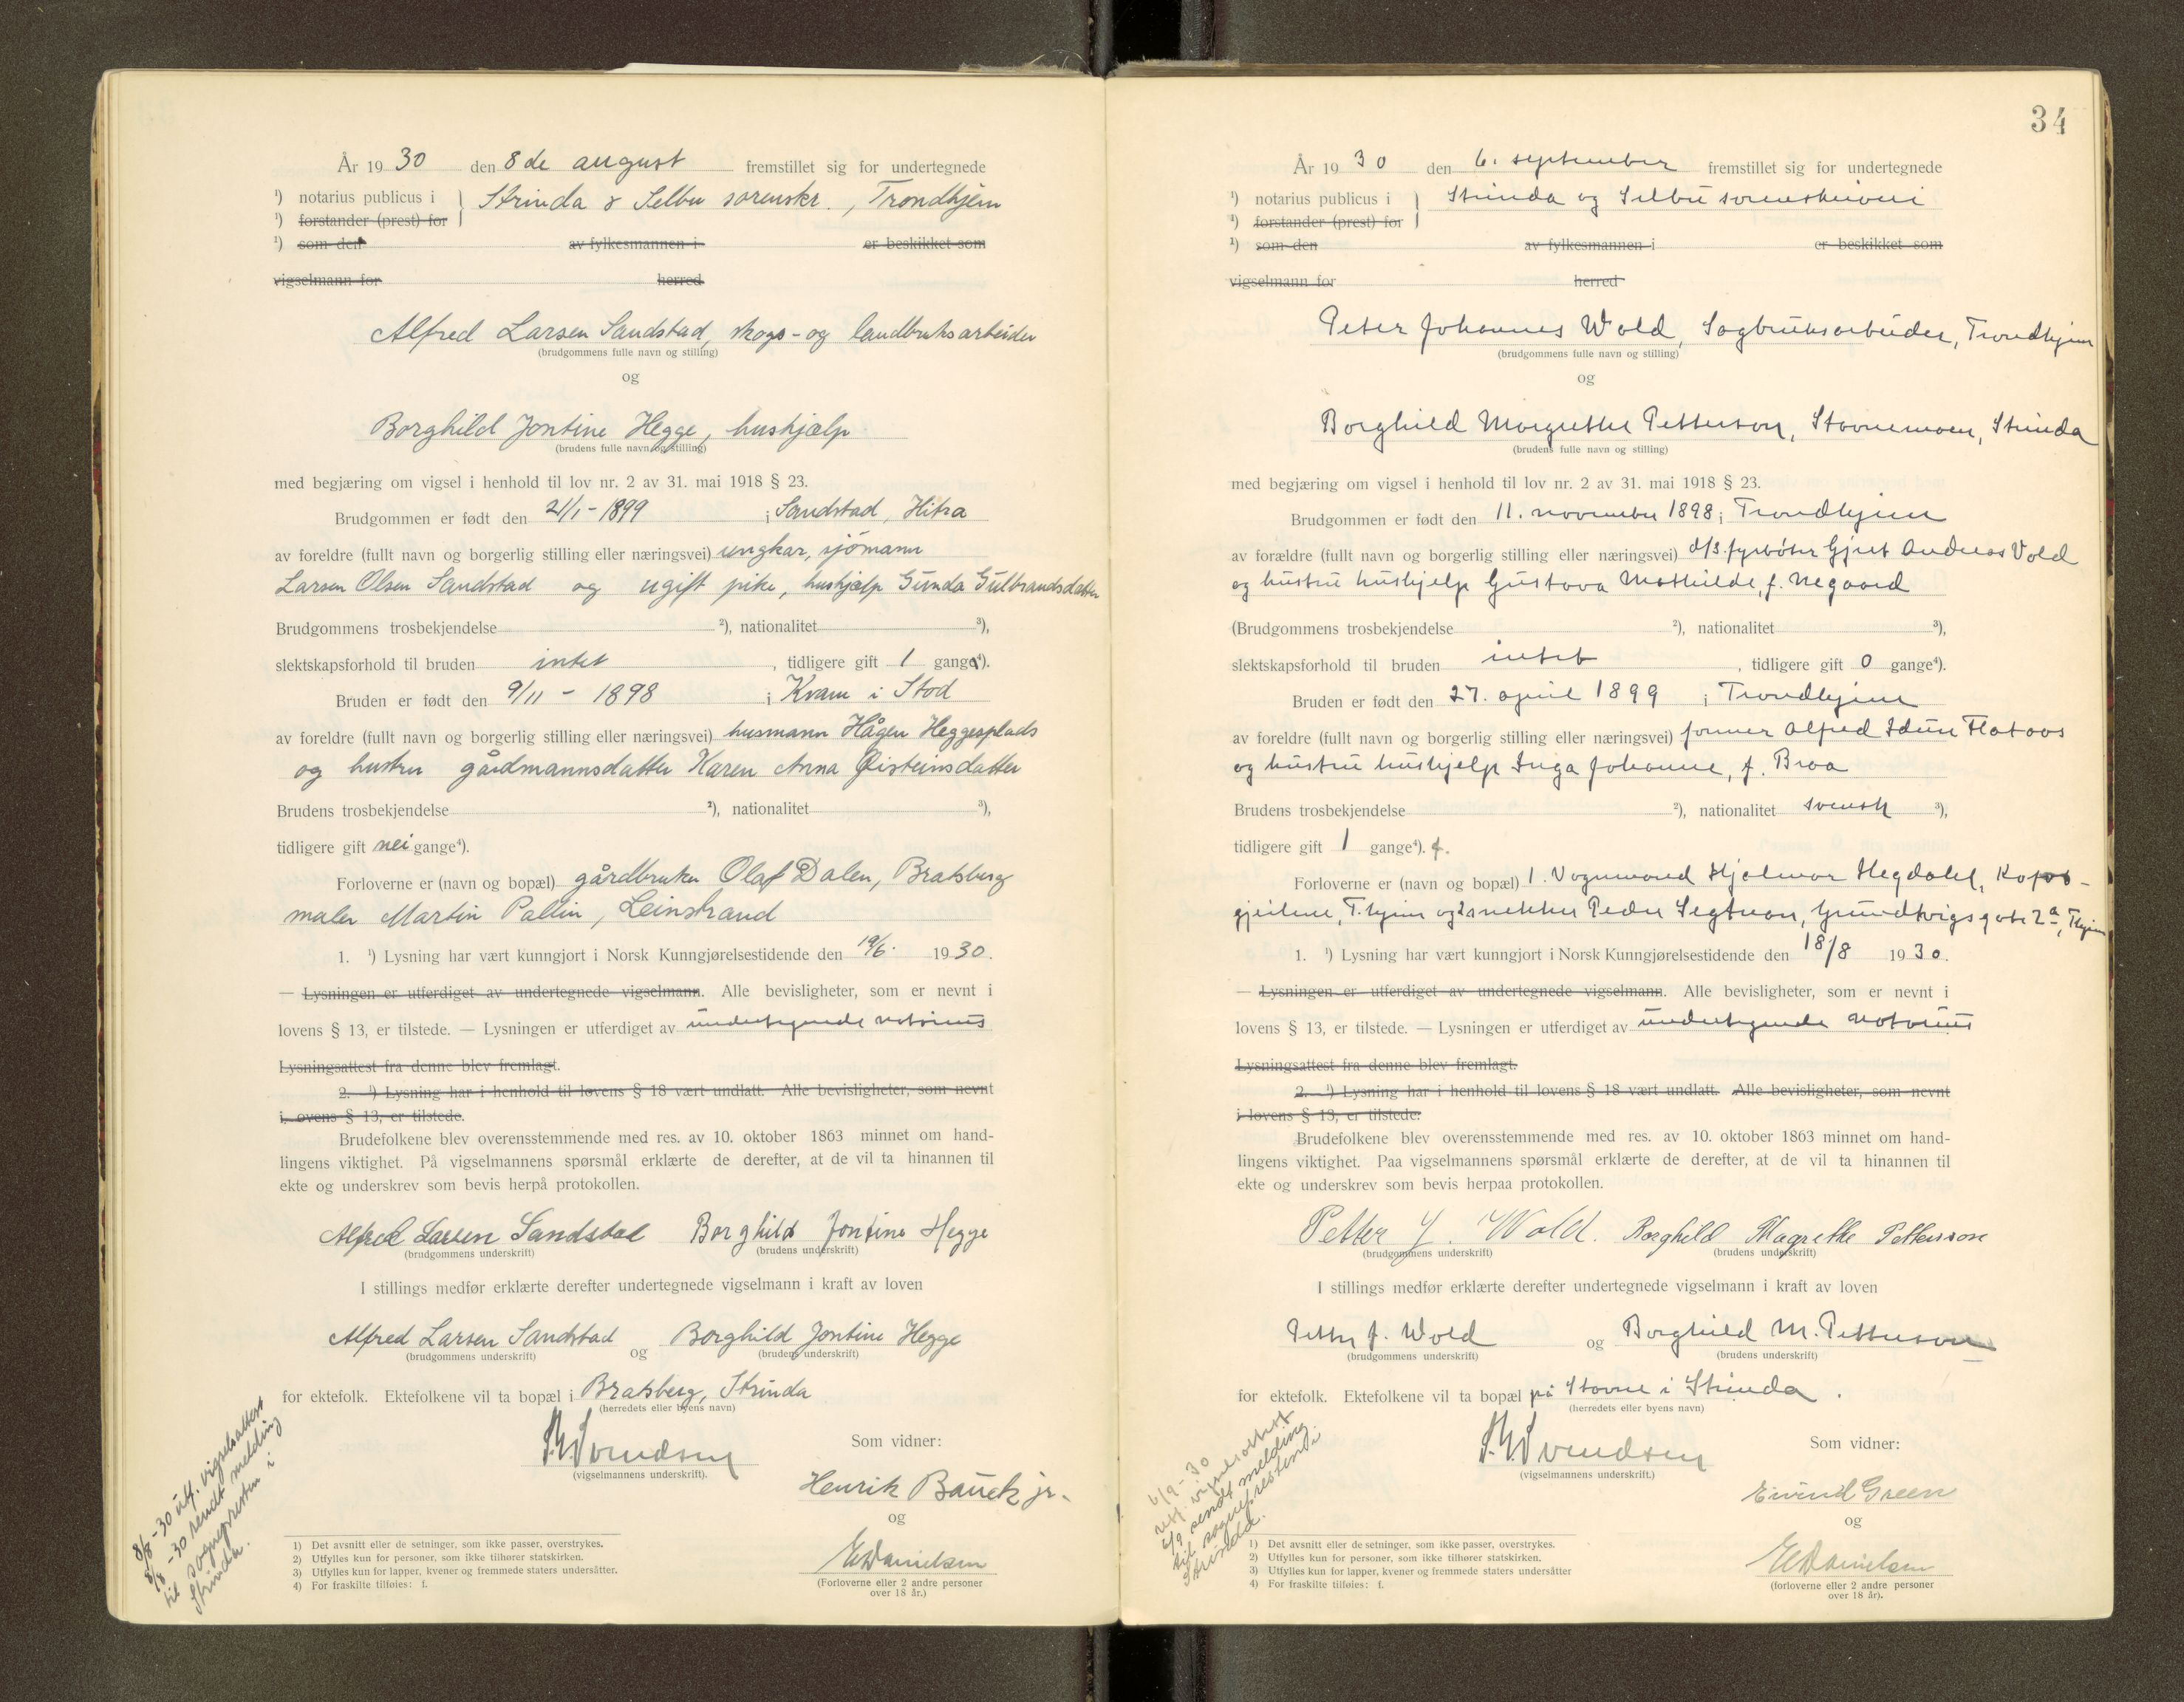 År 1930 den 8de august fremstillet sig for undertegnede
¹) notarius publicus i } Strinda & Selbu sorenskr., Trondhjem
¹) forstander (prest) for
¹) som den av fylkesmannen i er beskikket som
vigselmann for herred
Alfred Larsen Sandstad, skogs- og landbruksarbeider
(brudgommens fulle navn og stilling)
og
Borghild Jontine Hegge, hushjælp
(brudens fulle navn og stilling)
med begjæring om vigsel i henhold til lov nr. 2 av 31. mai 1918 § 23.
Brudgommen er født den 21/1-1899 i Sandstad, Hitra
av foreldre (fullt navn og borgerlig stilling eller næringsvei) ungkar, sjömann
Larsen Olsen Sandstad og ugift pike, hushjælp Gunda Gulbrandsdatter
Brudgommens trosbekjendelse ²), nationalitet ³),
slektskapsforhold til bruden intet, tidligere gift 1 gange⁴).
Bruden er født den 9/11 - 1898 i Kvam i Stod
av foreldre (fullt navn og borgerlig stilling eller næringsvei) husmann Hågen Heggesplads
og hustru gårdmannsdatter Karen Anna Øisteinsdatter
Brudens trosbekjendelse ²), nationalitet ³),
tidligere gift nei gange⁴).
Forloverne er (navn og bopæl) gårdbruker Olaf Dalen, Bratsberg
maler Martin Pallin, Leinstrand
1. ¹) Lysning har vært kunngjort i Norsk Kunngjørelsestidende den 19/6. 1930.
— Lysningen er utferdiget av undertegnede vigselmann. Alle bevisligheter, som er nevnt i
lovens § 13, er tilstede. — Lysningen er utferdiget av undertegnede notarius
Lysningsattest fra denne blev fremlagt.
2. ¹) Lysning har i henhold til lovens § 18 vært undlatt. Alle bevisligheter, som nevnt
i lovens § 13, er tilstede.
Brudefolkene blev overensstemmende med res. av 10. oktober 1863 minnet om hand-
lingens viktighet. På vigselmannens spørsmål erklærte de derefter, at de vil ta hinannen til
ekte og underskrev som bevis herpå protokollen.
Alfred Larsen Sandstad Borghild Jontine Hegge
(brudgommens underskrift) (brudens underskrift)
I stillings medfør erklærte derefter undertegnede vigselmann i kraft av loven
Alfred Larsen Sandstad og Borghild Jontine Hegge
(brudgommens underskrift) (brudens underskrift)
for ektefolk. Ektefolkene vil ta bopæl i Bratsberg, Strinda
(herredets eller byens navn)
Svendsen
(vigselmannens underskrift).
Som vidner:
Henrik Bauck jr.
og
E Danielsen
(Forloverne eller 2 andre personer
over 18 år.)
8/8-30 utf. vigselsattest
8/8-30 sendt melding
til sognepresten i
Strinda.
1) Det avsnitt eller de setninger, som ikke passer, overstrykes.
2) Utfylles kun for personer, som ikke tilhører statskirken.
3) Utfylles kun for lapper, kvener og fremmede staters undersåtter.
4) For fraskilte tilføies: f.
34
År 1930 den 6. september fremstillet sig for undertegnede
¹) notarius publicus i } Strinda og Selbu sorenskriveri
¹) forstander (prest) for
¹) som den av fylkesmannen i er beskikket som
vigselmann for herred
Peter Johannes Wold, Sagbruksarbeider, Trondhjem
(brudgommens fulle navn og stilling)
og
Borghild Margrethe Petterson, Stavnemoen, Strinda
(brudens fulle navn og stilling)
med begjæring om vigsel i henhold til lov nr. 2 av 31. mai 1918 § 23.
Brudgommen er født den 11. november 1898 i Trondhjem
av forældre (fullt navn og borgerlig stilling eller næringsvei) d/s. fyrbøter Gjert Andreas Vold
og hustru hushjelp Gustava Mathilde, f. Negaard
(Brudgommens trosbekjendelse ²), nationalitet ³),
slektskapsforhold til bruden intet, tidligere gift 0 gange⁴).
Bruden er født den 27. april 1899 i Trondhjem
av foreldre (fullt navn og borgerlig stilling eller næringsvei) former Alfred Flataas
og hustru hushjelp Inga Johanne, f. Broa
Brudens trosbekjendelse ²), nationalitet svensk ³),
tidligere gift 1 gange⁴). f.
Forloverne er (navn og bopæl) 1. Vognmand Hjalmar Hegdahl,
T.hjem og 2 snekker Peder Segtnan, Grundtvigs gate 2a, T.hjem
1. ¹) Lysning har vært kunngjort i Norsk Kunngjørelsestidende den 18/8 1930.
— Lysningen er utferdiget av undertegnede vigselmann. Alle bevisligheter, som er nevnt i
lovens § 13, er tilstede. — Lysningen er utferdiget av undertegnede notarius
Lysningsattest fra denne blev fremlagt.
2. ¹) Lysning har i henhold til lovens § 18 vært undlatt. Alle bevisligheter, som nevnt
i lovens § 13, er tilstede.
Brudefolkene blev overensstemmende med res. av 10. oktober 1863 minnet om hand-
lingens viktighet. Paa vigselmannens spørsmål erklærte de derefter, at de vil ta hinannen til
ekte og underskrev som bevis herpaa protokollen.
Petter J. Wold. Borghild Magrethe Pettersson
(brudgommens underskrift) (brudens underskrift)
I stillings medfør erklærte derefter undertegnede vigselmann i kraft av loven
Petter J. Wold og Borghild M. Petterson
(brudgommens underskrift) (brudens underskrift)
for ektefolk. Ektefolkene vil ta bopæl på Stavne i Strinda.
(herredets eller byens navn)
Svendsen
(vigselmannens underskrift.)
Som vidner:
Eivind Green
og
E Danielsen
(forloverne eller 2 andre personer
over 18 år).
6/9-30
utf. vigselsattest
6/9 sendt melding
til sognepresten i
Strinda.
1) Det avsnitt eller de setninger, som ikke passer, overstrykes.
2) Utfylles kun for personer, som ikke tilhører statskirken.
3) Utfylles kun for lapper, kvener og fremmede staters undersåtter
4) For fraskilte tilføies: f.